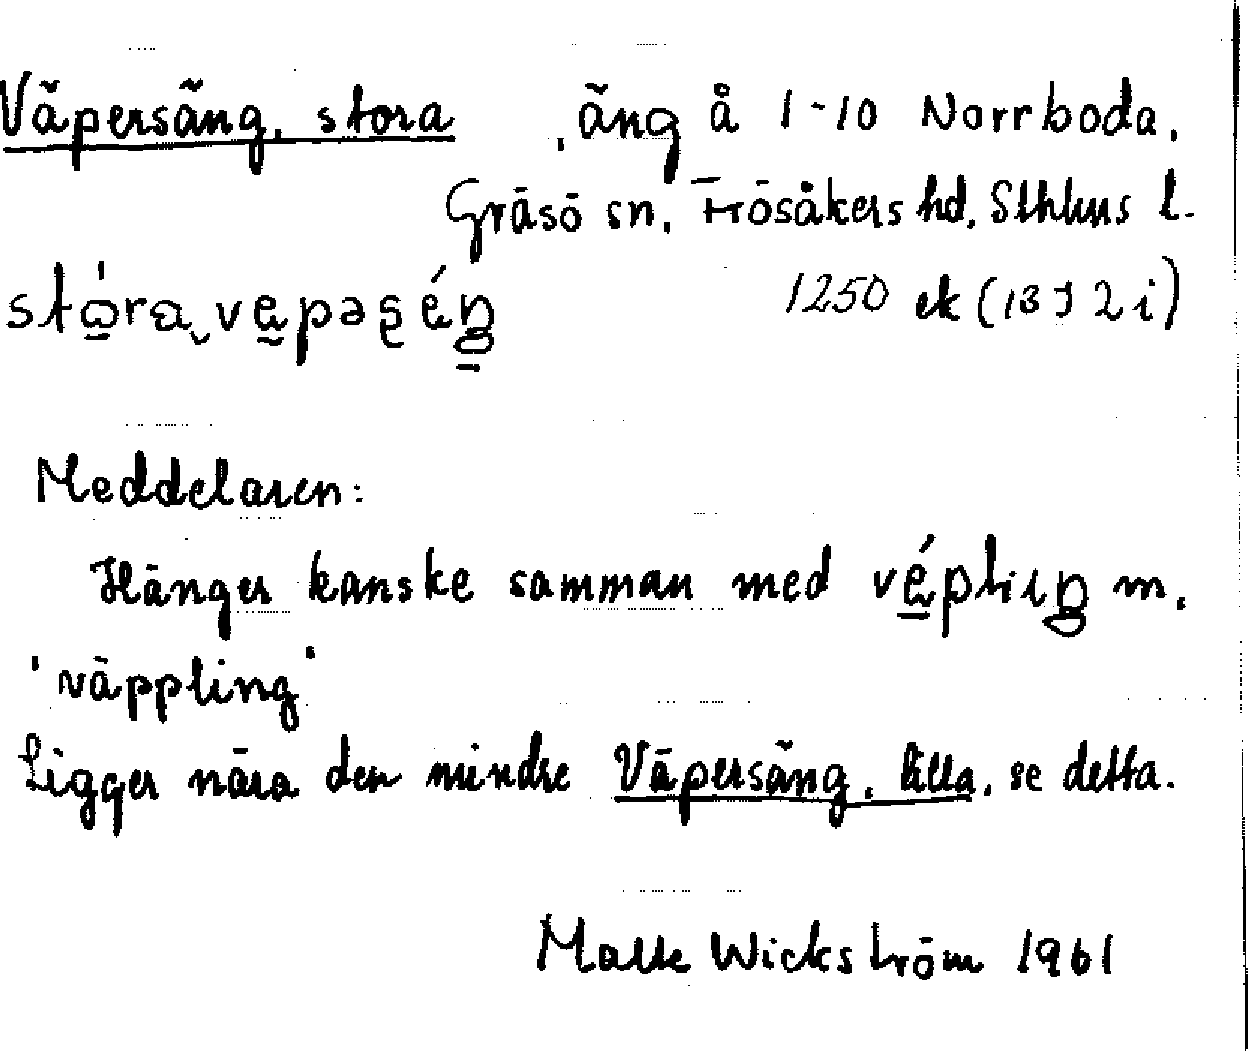 Väpersäng, stora , äng å 1-10 Norrboda,
Gräsö sn, Frösåkers hd, Sthlms l.
1250 ek (13 I 2 i)
Meddelaren:
Hänger kanske samman med m.
'väppling'
Ligger nära den mindre Väpersäng, lilla, se detta.
Malte Wickström 1961